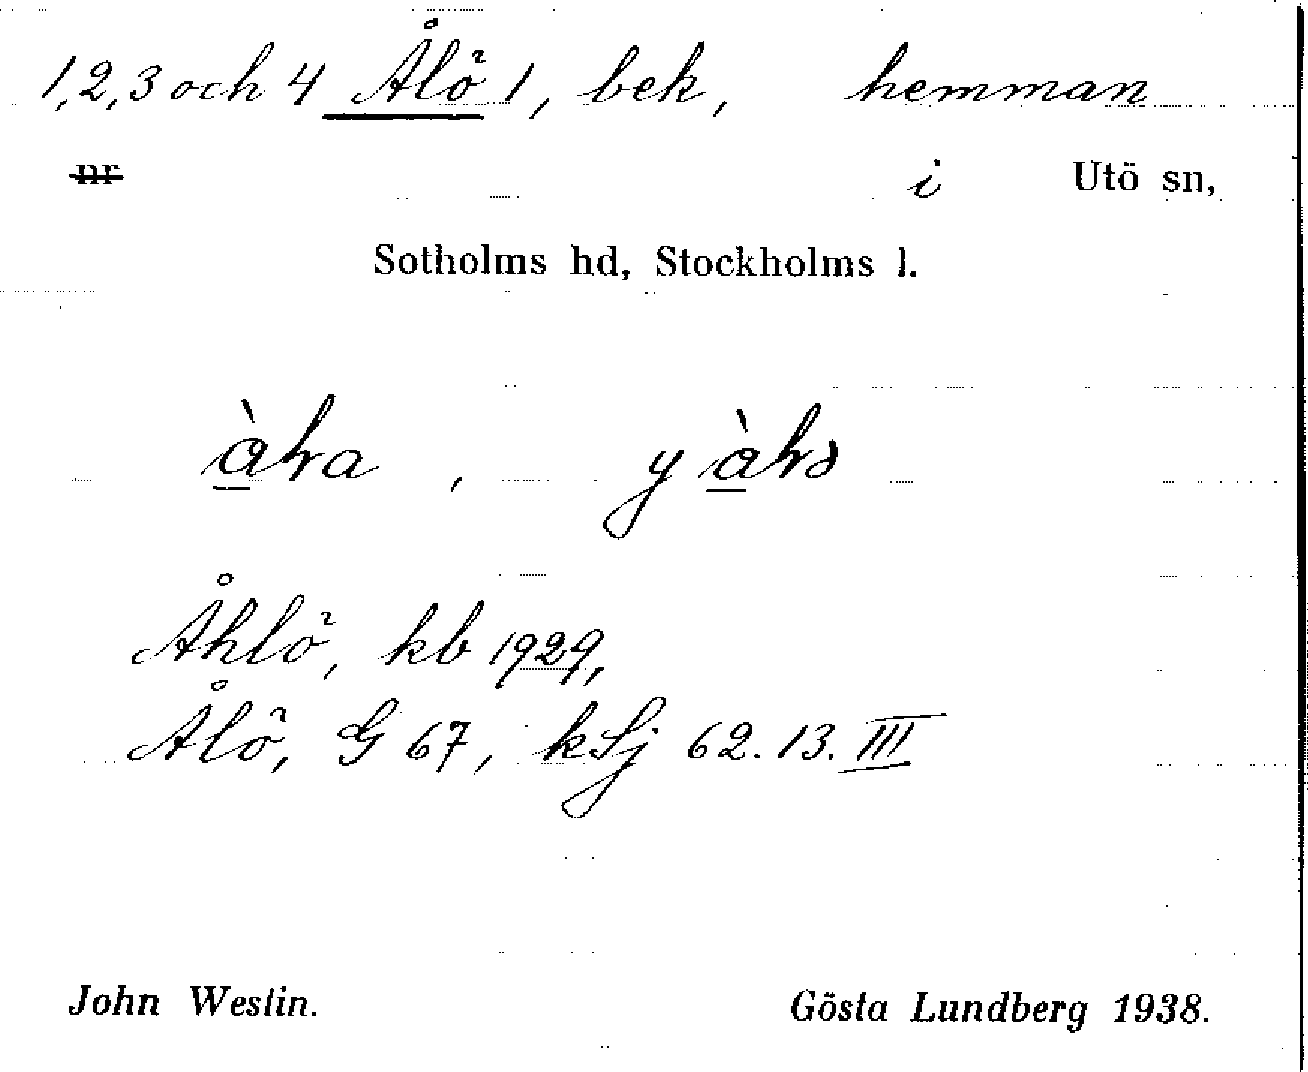 1,2,3 och 4 Ålö 1, bek, hemman
nr i Utö sn,
Sotholms hd, Stockholms l.
Åhlö, kb 1929,
Ålö, G 67, kSj 62.13.III
John Westin. Gösta Lundberg 1938.